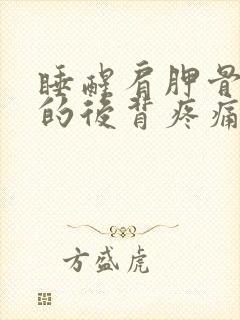 睡醒肩胛骨
的后背疼痛
方盛虎